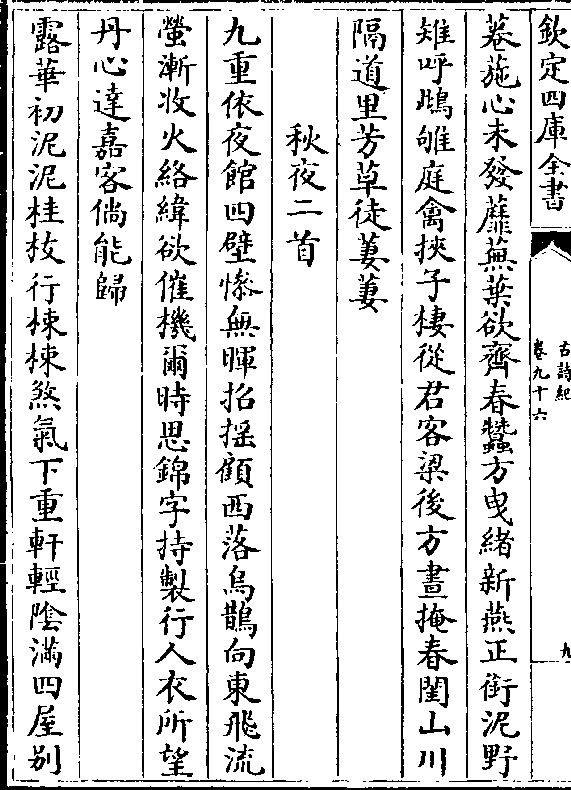 欽定四庫全書
古詩紀
卷九十六
九
葹心未發蘼蕪葉欲齊春蠶方曳緒新燕正銜泥野
雉呼鴡雊庭禽挾子棲從君客梁後方晝掩春閨山川
隔道里芳草徒萋萋
秋夜二首
九重依夜館四壁慘無暉招摇顧西落烏鵲向東飛流
螢漸收火絡緯欲催機爾時思錦字持製行人衣所望
丹心達嘉客倘能歸
露華初泥泥桂枝行棟棟煞氣下重軒輕陰滿四屋别